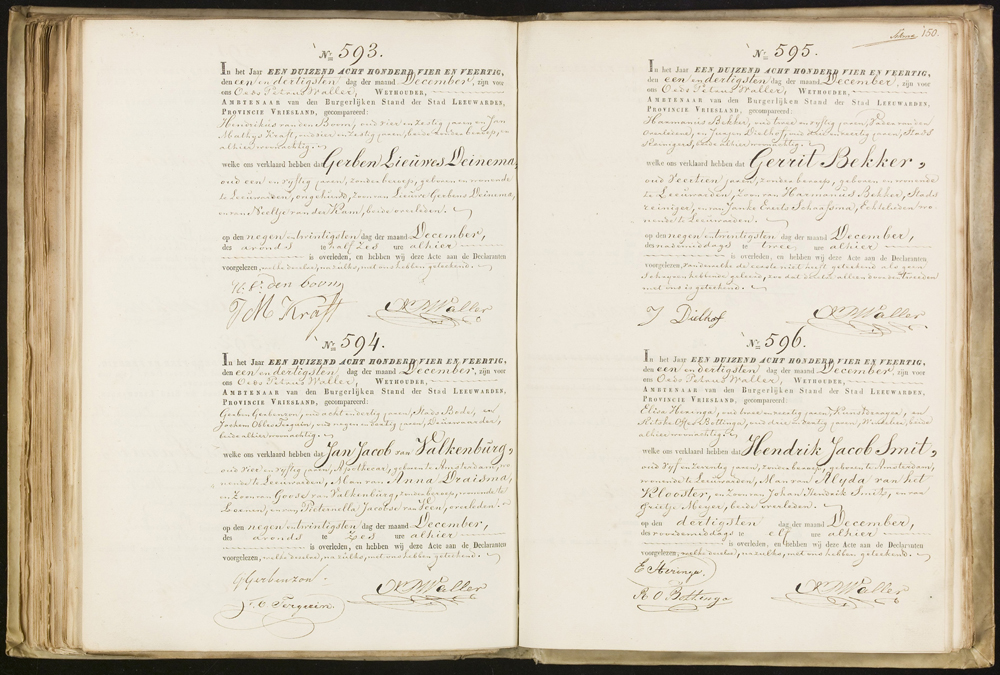 N.º 593.
In het Jaar EEN DUIZEND ACHT HONDERD VIER EN VEERTIG,
den een en dertigsten dag der maand December, zijn voor
ons Oeds Petrus Waller, WETHOUDER,
AMBTENAAR van den Burgerlijken Stand der Stad LEEUWARDEN,
PROVINCIE VRIESLAND, gecompareerd:
Hendrikus van den Boom, oud vier en zestig jaren en Jan
Mathijs Kraft, oud vier en zestig jaren, beide zonder beroep,
alhier woonachtig.
welke ons verklaard hebben dat Gerben Lieuwes Deinema
oud een en vijftig jaren, zonder beroep, geboren en wonende
te Leeuwarden, ongehuwd, zoon van Lieuwe Gerbens Deinema,
en van Neeltje van der Kam, beide overleden.
op den negen en twintigsten dag der maand December,
des avonds te half zes ure alhier
is overleden, en hebben wij deze Acte aan de Declaranten
voorgelezen, welke dezelve, nu zulks, met ons hebben geteekend.
H. v. den boom
J M Kraft O P Waller
N.º 594.
In het Jaar EEN DUIZEND ACHT HONDERD VIER EN VEERTIG,
den een en dertigsten dag der maand December, zijn voor
ons Oeds Petrus Waller, WETHOUDER,
AMBTENAAR van den Burgerlijken Stand der Stad LEEUWARDEN,
PROVINCIE VRIESLAND, gecompareerd:
Gerben Gerbenzon, oud acht en dertig jaren, Stads Bode, en
Jochem Obles Tergouw, oud negen en dertig jaren, Deurwaarder,
beide alhier woonachtig.
welke ons verklaard hebben dat Jan Jacob van Valkenburg,
oud vier en vijftig jaren, Apothecar, geboren te Amsterdam, wo
nende te Leeuwarden, Man van Anna Draisma,
en Zoon van Goose van Valkenburg, zonder beroep, wonende te
Loenen, en van Pieternella Jacobse van Veen, overleden.
op den negen en twintigsten dag der maand December,
des avonds te zes ure alhier
is overleden, en hebben wij deze Acte aan de Declaranten
voorgelezen, welke dezelve, nu zulks, met ons hebben geteekend.
G Gerbenzon.
O P Waller
150.
N.º 595.
In het Jaar EEN DUIZEND ACHT HONDERD VIER EN VEERTIG,
den een en dertigsten dag der maand December, zijn voor
ons Oeds Petrus Waller, WETHOUDER,
AMBTENAAR van den Burgerlijken Stand der Stad LEEUWARDEN,
PROVINCIE VRIESLAND, gecompareerd:
Harmanus Bekker, oud twee en vijftig jaren, Vader van den
Overleden, en Jurjen Dielhof, oud jaren, Stads
Reinigers, beide alhier woonachtig.
welke ons verklaard hebben dat Gerrit Bekker,
oud Veertien jaren, zonder beroep, geboren en wonende
te Leeuwarden, Zoon van Harmanus Bekker, Stads
reiniger, en van Janke Everts Schaafsma, Echtelieden wo
nende te Leeuwarden.
op den negen en twintigsten dag der maand December,
des namiddags te twee, ure alhier
is overleden, en hebben wij deze Acte aan de Declaranten
voorgelezen, zoodanig de eerste niet heeft geteekend als geen
Schrijven hebbende geleerd, zoo dat dezelve alleen door den tweeden
met ons is geteekend.
J Dielhof O P Waller
N.º 596.
In het Jaar EEN DUIZEND ACHT HONDERD VIER EN VEERTIG,
den een en dertigsten dag der maand December, zijn voor
ons Oeds Petrus Waller, WETHOUDER,
AMBTENAAR van den Burgerlijken Stand der Stad LEEUWARDEN,
PROVINCIE VRIESLAND, gecompareerd:
Elisa Heringa, oud twee en veertig jaren, en
Ottes Bottinga, oud drie en dertig jaren, Winkelier, beide
alhier woonachtig.
welke ons verklaard hebben dat Hendrik Jacob Smit,
oud Vijf en zeventig jaren, zonder beroep, geboren te Amsterdam,
wonende te Leeuwarden, Man van Alyda van het
Klooster, en zoon van Johan Hendrik Smit, en van
Grietje Meyer, beide overleden.
op den dertigsten dag der maand December,
des voordemiddags te elf ure alhier
is overleden, en hebben wij deze Acte aan de Declaranten
voorgelezen, welke dezelve, nu zulks, met ons hebben geteekend.
E Heringa.
R O Bottinga O P Waller